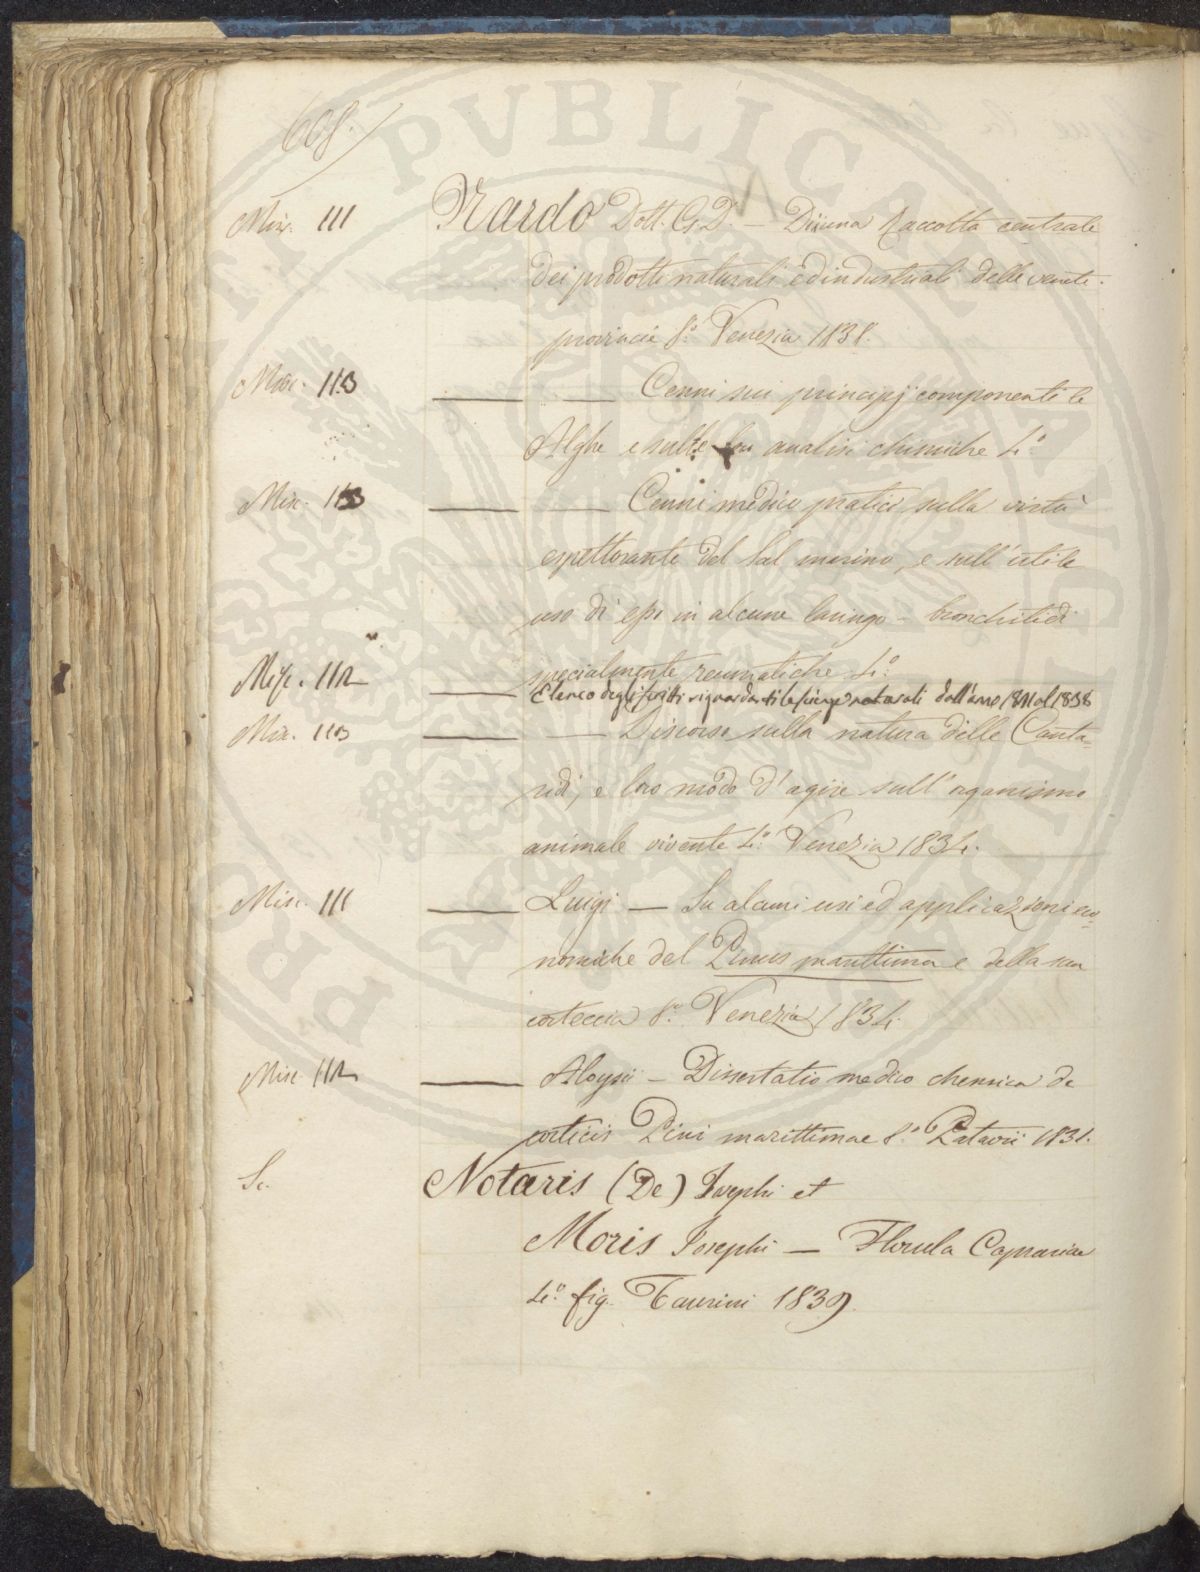 608.
Misc. 111 Nardo Dott. G. D. — Di una Raccolta centrale
dei prodotti naturali ed industriali delle venete
provincie 8.° Venezia 1838.
Misc. 113 — — Cenni sui principj componenti le
Alghe e sulle loro analisi chimiche 4.°
Misc. 113 — — Cenni medico pratici sulla virtù
espettorante del Sal marino, e sull'utile
uso di esso in alcune laringo-bronchitidi
specialmente reumatiche 4.°
Misc. 112 — Elenco degli scritti riguardanti le scienze naturali dall'anno 1811 al 1838
Misc. 113 — — Discorso sulla natura delle Canta=
ridi, e loro modo d'agire sull'organismo
animale vivente 4.° Venezia 1834.
Misc. 111 — Luigi — Su alcuni usi ed applicazioni eco=
nomiche del Pinus marittima e della sua
corteccia 8.° Venezia 1834.
Misc. 112 — Aloysii — Dissertatio medico chemica de
corticis Pini marittimae 8.° Patavii 1831.
Sc. Notaris (De) Josephi et
Moris Josephi — Florula Caprariae
4.° fig. Taurini 1839.
PROSPERITATI PVBLICAE